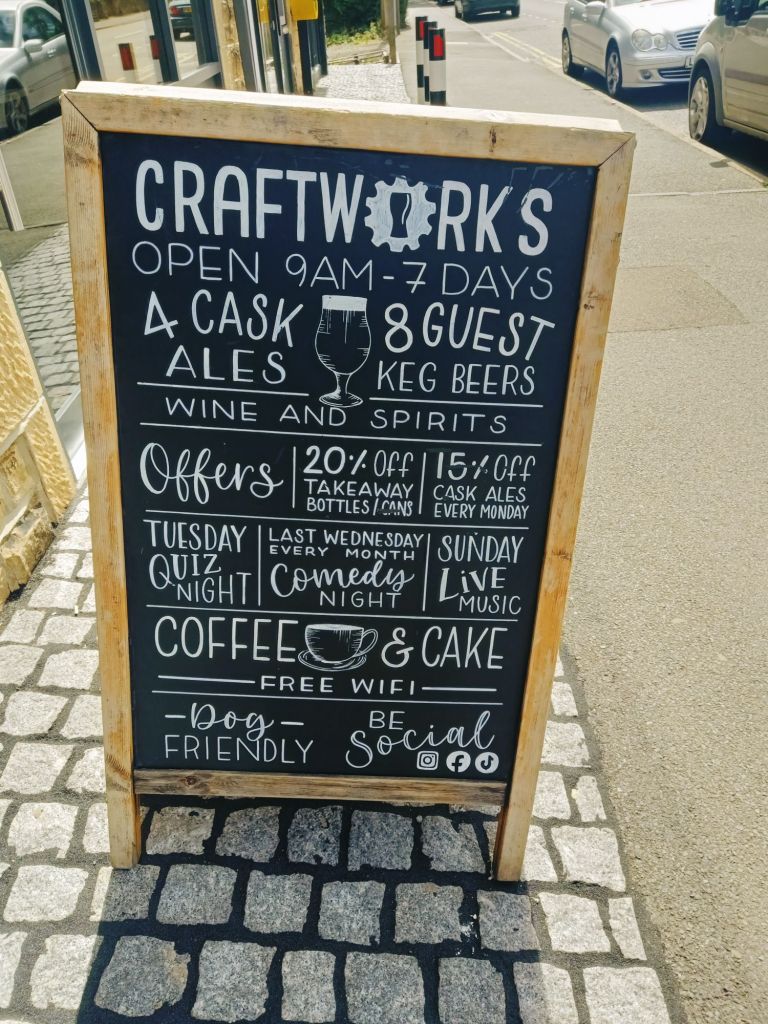 CRAFTWORKS
OPEN 9AM-7 DAYS
4 CASK ALES
8 GUEST KEG BEERS
WINE AND SPIRITS
Offers
20% OFF
TAKEAWAY
BOTTLES/CANS
15% OFF
CASK ALES
EVERY MONDAY
TUESDAY
QUIZ
NIGHT
LAST WEDNESDAY
EVERY MONTH
Comedy
NIGHT
SUNDAY
LIVE
MUSIC
COFFEE & CAKE
FREE WIFI
-Dog-
FRIENDLY
BE
Social